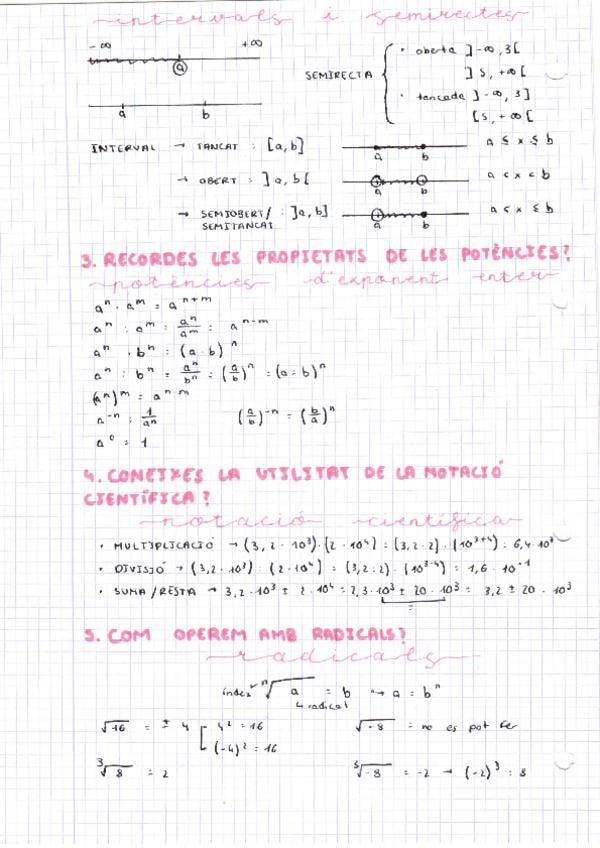 intervals i semirectes
-∞ +∞
a
a b
SEMIRECTA
· oberta ]-∞, 3[
]5, +∞[
· tancada ]-∞, 3]
[5, +∞[
INTERVAL → TANCAT : [a, b] a b a ≤ x ≤ b
→ OBERT : ]a, b[ a b a < x < b
→ SEMIOBERT/ : ]a, b] a b a < x ≤ b
SEMITANCAT
3. RECORDES LES PROPIETATS DE LES POTÈNCIES?
potències d'exponent enter
aⁿ · aᵐ = aⁿ⁺ᵐ
aⁿ : aᵐ = aⁿ/aᵐ = aⁿ⁻ᵐ
aⁿ · bⁿ = (a · b)ⁿ
aⁿ : bⁿ = aⁿ/bⁿ = (a/b)ⁿ = (a : b)ⁿ
(aⁿ)ᵐ = aⁿ·ᵐ
a⁻ⁿ = 1/aⁿ (a/b)⁻ⁿ = (b/a)ⁿ
a⁰ = 1
4. CONEIXES LA UTILITAT DE LA NOTACIÓ
CIENTÍFICA?
notació científica
· MULTIPLICACIÓ → (3,2 · 10³) · (2 · 10⁴) = (3,2 · 2) · (10³⁺⁴) = 6,4 · 10⁷
· DIVISIÓ → (3,2 · 10³) : (2 · 10⁴) = (3,2 : 2) · (10³⁻⁴) = 1,6 · 10⁻¹
· SUMA/RESTA → 3,2 · 10³ ± 2 · 10⁴ = 2,3 · 10³ ± 20 · 10³ = 3,2 ± 20 · 10³
=
5. COM OPEREM AMB RADICALS?
radicals
índex ⁿ√a = b → a = bⁿ
↳ radical
√16 = ± 4 [ 4² = 16 √-8 = no es pot fer
(-4)² = 16
³√8 = 2 ³√-8 = -2 → (-2)³ = 8